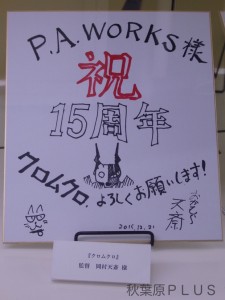 P.A.WORKS様
祝
15周年
クロムクロ、よろしくお願いします!
2015.12.21
『クロムクロ』
監督 岡村天斎 様
秋葉原PLUS